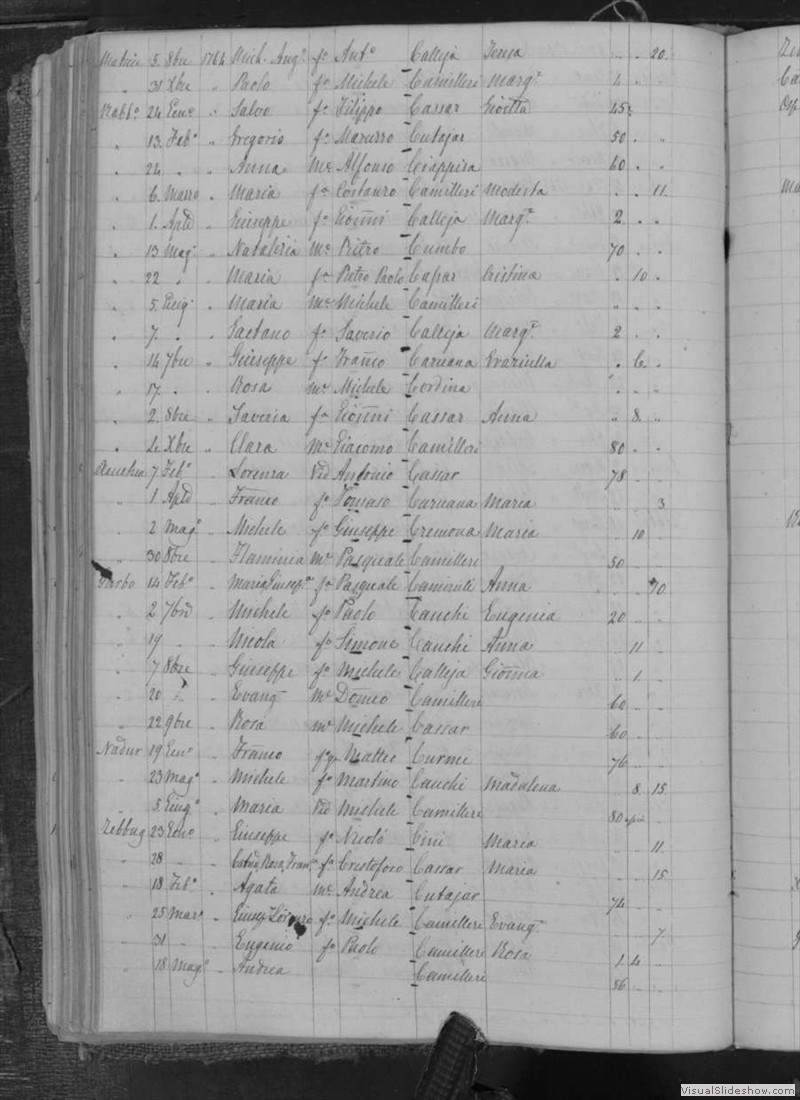 Matrice 5 8bre 1764 Mich. Angº fº Antº Calleja Teresa .. .. 20.
" 31 Xbre " Paolo fº Michele Camilleri Margª 4 . .
Rabbº 24 Enº " Salvo fº Filippo Cassar Gioetta 45 . .
" 13 Febº " Gregorio fº Cutajar 50 . .
" 24 " " Anna Mº Alfonso Ciappisa 60 . .
" 6 Marzo " Maria fª Costanzo Camilleri Modesta . . 11.
" 1 Aple " Giuseppe fº Gioñni Calleja Margª 2 . .
" 13 Magº " Mº Pietro Cumbo 70 . .
" 22 " " Maria fª Pietro Paolo Caſsar Cristina . 10 .
" 5 Giugº " Maria Mº Michele Camilleri . . .
" 7 " " Gaetano fº Saverio Calleja Margª 2 . .
" 14 7bre " Giuseppe fº Franco Caruana . 6 .
" 17 " " Rosa Mº Michele Cordina . . .
" 2 8bre " Saveria fª Gioñni Cassar Anna " 8 .
" 2 Xbre " Clara Mº Giacomo Camilleri 80 . .
7 Febº " Lorenza Vid Antonio Cassar 78 . .
" 1 Aple " Franco fº Tomaso Caruana Maria .. .. 3
" 2 Magº " Michele fº Giuseppe Cremona Maria .. 10 ..
" 30 8bre " Flaminia Mº Pasquale Camilleri 50 .. ..
Garbo 14 Febº " Maria Giusepª fª Pasquale Anna .. .. 10.
" 2 7bre " Michele fº Paolo Cauchi Eugenia 20 .. ..
" 19 " " Nicola fº Simone Cauchi Anna .. 11 ..
" 7 8bre " Giuseppe fº Michele Calleja Gioñna .. 1. ..
" 20 " " Evangª Mº Domco Camilleri 60 .. ..
" 22 9bre " Rosa Mº Michele Cassar 60 .. ..
Nadur 19 Enº " Franco fº Matteo Curmi 76 .. ..
" 23 Magº " Michele fº Martino Cauchi Madalena .. 8 15
" 5 Giugº " Maria Vid Michele Camilleri 80
Zebbug 23 Enº " Giuseppe fº Nicolò Cini Maria .. .. 11
" 28 " " Catña, Rosa, Franª fª Cristoforo Cassar Maria .. .. 15
" 18 Febº " Agata Mº Andrea Cutajar 74 .. ..
" 25 Marº " Giusep Lorenzo fº Michele Camilleri Evangª .. .. 7
" 31 " " Eugenio fº Paolo Camilleri Rosa 1 4 ..
" 18 Magº " Andrea Camilleri 56 .. ..
VisualSlideshow.com